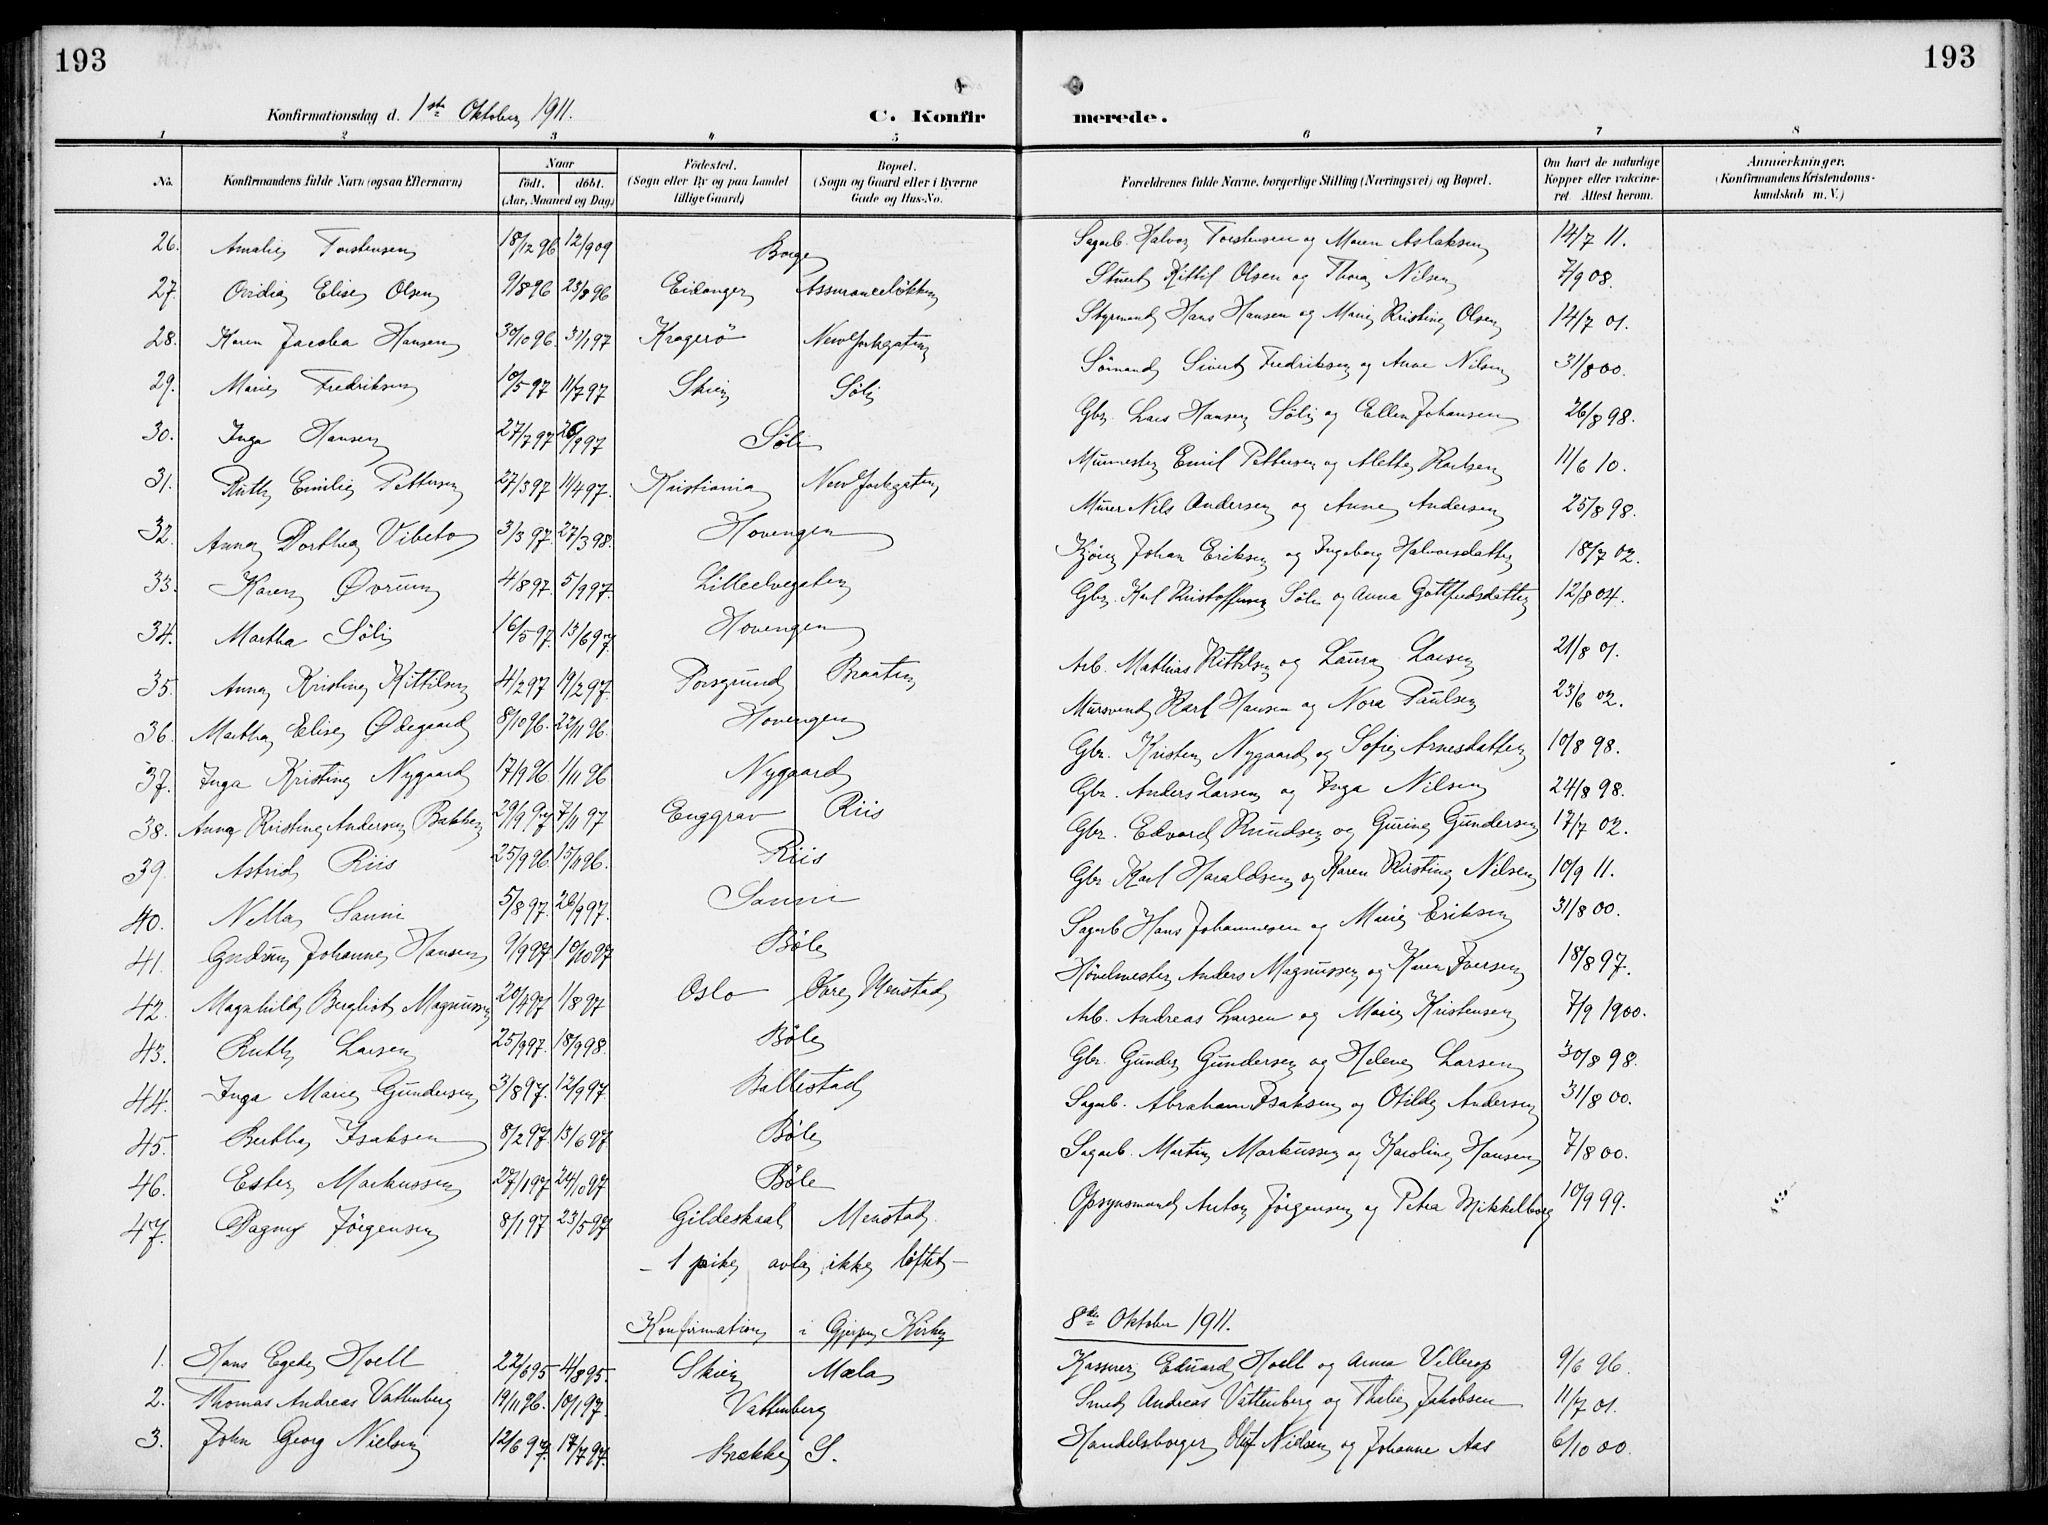 193
193
Konfirmationsdag d. 1ste Oktober 1911.
C. Konfirmerede.
1 2 3 4 5 6 7 8
No. Konfirmandens fulde Navn (ogsaa Efternavn) Naar født. døbt. (Aar, Maaned og Dag) Fødested. (Sogn eller By og paa Landet tillige Gaard) Bopæl. (Sogn og Gaard eller i Byerne Gade og Hus-No. Forældrenes fulde Navne, borgerlige Stilling (Næringsvei) og Bopæl. Om havt de naturlige Kopper eller vakcineret. Attest herom. Anmærkninger. (Konfirmandens Kristendomskundskab m. V.)
26. Amalie Torstensen 18/12 96 12/9 09 Borge Sagarb. Halvor Torstensen og Maren Aslaksen 14/7 11.
27. Ovidia Elise Olsen 9/8 96 23/8 96 Eidanger Assuranceløkken Stuert Kittil Olsen og Thora Nilsen 7/9 08.
28. Karen Jacoba Hansen 30/10 96. 31/1 97 Kragerö NewYorkgaten Styrmand Hans Hansen og Marie Kristine Olsen 14/7 01.
29. Marie Fredriksen 10/5 97 11/7 97 Skien Søli Sømand Sivert Fredriksen og Anne Nilsen 31/8 00.
30. Inga Hansen 27/7 97 26/9 97 Søli Gbr. Lars Hansen Søli og Ellen Johansen 26/8 98.
31. Ruth Emilie Pettersen 27/3 97 11/4 97. Kristiania NewYorkgaten Murmester Emil Pettersen og Alette Karlsen 11/6 10.
32. Anna Dorthea Vibeto 3/3 97. 27/3 98. Hovengen Murer Nils Andersen og Anne Andersen 25/8 98.
33. Karen Øvrum 4/8 97. 5/9 97. Lilleelvegaten Kjører Johan Eriksen og Ingeborg Halvorsdatter 18/7 02.
34. Martha Søli 16/5 97. 13/6 97. Hovengen Gbr. Karl Kristoffersen Søli og Anna Gottfredsdatter 12/8 04.
35. Anna Kristine Kittilsen 4/2 97 19/2 97. Porsgrund Braaten Arb. Mathias Kittilsen og Laura Larsen 21/8 01.
36. Martha Elise Ødegaard 8/10 96. 22/11 96. Hovengen Mursvend Karl Hansen og Nora Paulsen 23/6 02.
37. Inga Kristine Nygaard 17/9 96 1/11 96 Nygaard Gbr. Kristen Nygaard og Sofie Arnesdatter 10/8 98.
38. Anna Kristine Andersen Bakken 29/9 97 7/11 97 Enggrav Riis Gbr. Anders Larsen og Inga Nilsen 24/8 98.
39. Astrid Riis 25/9 96. 15/11 96. Riis Gbr. Edvard Knudsen og Gurine Gundersen 17/7 02.
40. Nella Sanni 5/8 97. 26/9 97. Sanni Gbr Karl Haraldsen og Karen Kristine Nilsen 10/9 11.
41. Gudrun Johanne Hansen 9/9 97. 10/10 97 Bøle Sagarb Hans Johannesen og Marie Eriksen 31/8 00.
42. Magnhild Bergliot Magnussen 20/4 97 1/8 97 Oslo Øvre Menstad Høvelmester Anders Magnussen og Karen Iversen 18/8 97.
43. Ruth Larsen 25/9 97. 18/9 98. Bøle Arb. Andreas Larsen og Marie Kristensen 7/9 1900.
44. Inga Marie Gundersen 3/8 97. 12/9 97. Ballestad Gbr. Gunder Gundersen og Helene Larsen 30/8 98.
45. Bertha Isaksen 8/2 97. 13/6 97 Bøle Sagarb. Abraham Isaksen og Otilde Andersen 31/8 00.
46. Ester Markussen 27/1 97 24/10 97 Bøle Sagarb. Martin Markussen og Karoline Hansen 7/8 00.
47. Dagny Jörgensen 8/1 97 23/5 97 Gildeskaal Menstad. Opsynsmand Anton Jörgensen og Petra Mikkelborg 10/9 99.
– 1 pike avla ikke løftet –
Konfirmation i Gjerpen Kirke 8de Oktober 1911.
1. Hans Egede Hoell 22/6 95 4/8 95. Skien Mæla Kasserer Eduard Hoell og Anna Villerop 9/6 96.
2. Thomas Andreas Vattenberg 19/11 96. 10/1 97. Vattenberg Smed Andreas Vattenberg og Thalie Jakobsen 11/7 01.
3. John Georg Nielsen 12/6 97. 17/7 97. Brække S. Handelsborger Oluf Nielsen og Johanne Aas 6/10 00.